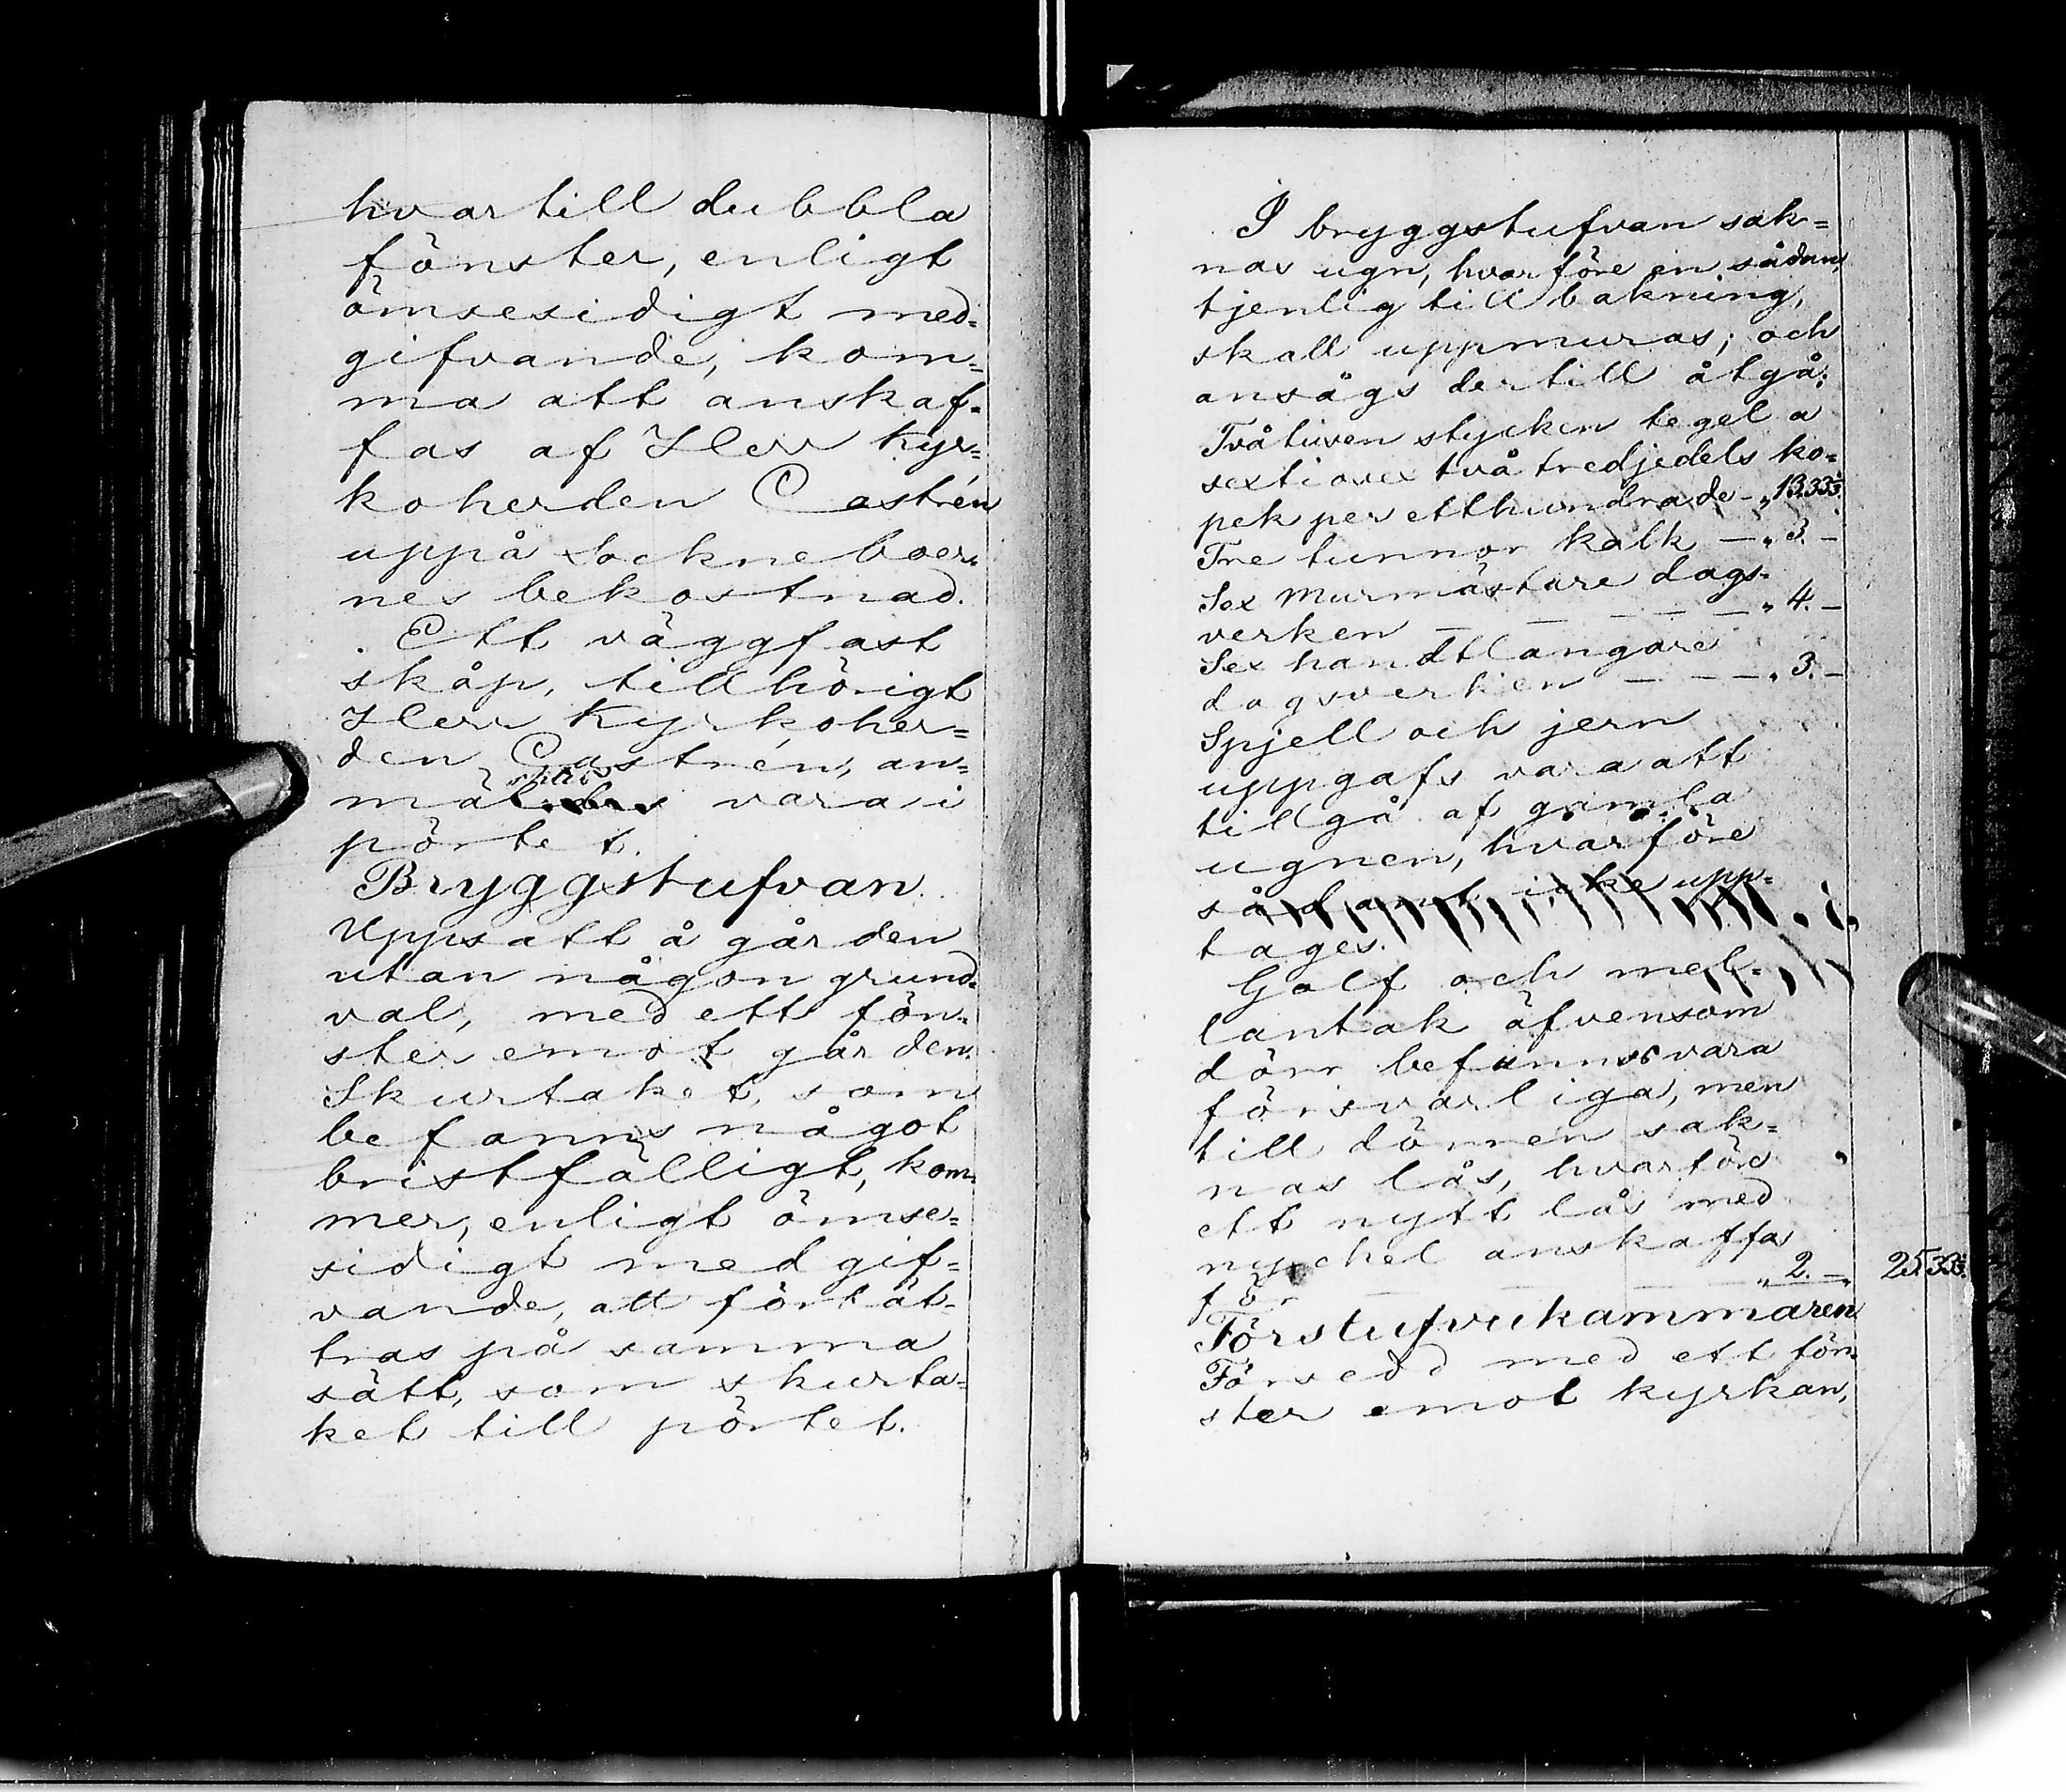 hvartill dubbla
fönster, enligt
ömsesidigt med=
gifvande, kom=
ma att anskaf=
fas af Herr Kyr=
koherden Castrén
uppå Sockneboer=
nes bekostnad.
Ett väggfast
skåp, tillhörigt
Herr Kyrkoher=
den Castrén, an=
mäldes vara i
pörtet.
Bryggstufvan.
Uppsatt å gården
utan någon grund=
val, med ett fön=
ster emot gården.
Skurtaket, som
befanns något
bristfälligt, kom=
mer, enligt ömse=
sidigt medgif=
vande, att förbät=
tras på samma
sätt, som skurta=
ket till pörtet.
I bryggstufvan sak=
nas ugn, hvarföre en sådan,
tjenlig till bakning,
skall uppmuras; och
ansågs dertill åtgå:
Tvåtusen stycken tegel a
sextiosex två tredjedels ko=
pek per etthundrade - „ 13.33⅓.
Tre tunnor kalk — „ 3. –
Sex Murmästare dags=
verken — — — — „ 4. –
Sex handtlangare
dagsverken — — — „ 3. –
Spjell och jern
uppgafs vara att
tillgå af gamla
ugnen, hvarföre
sådant icke upp=
tages.
Golf och mel=
lantak äfvensom
dörr befunnos vara
försvarliga, men
till dörren sak=
nas lås, hvarföre
ett nytt lås med
nyckel anskaffas
för — — — „ 2. – „ 25.33⅓.
Förstufvukammaren
Försedd med ett fön=
ster emot kyrkan,